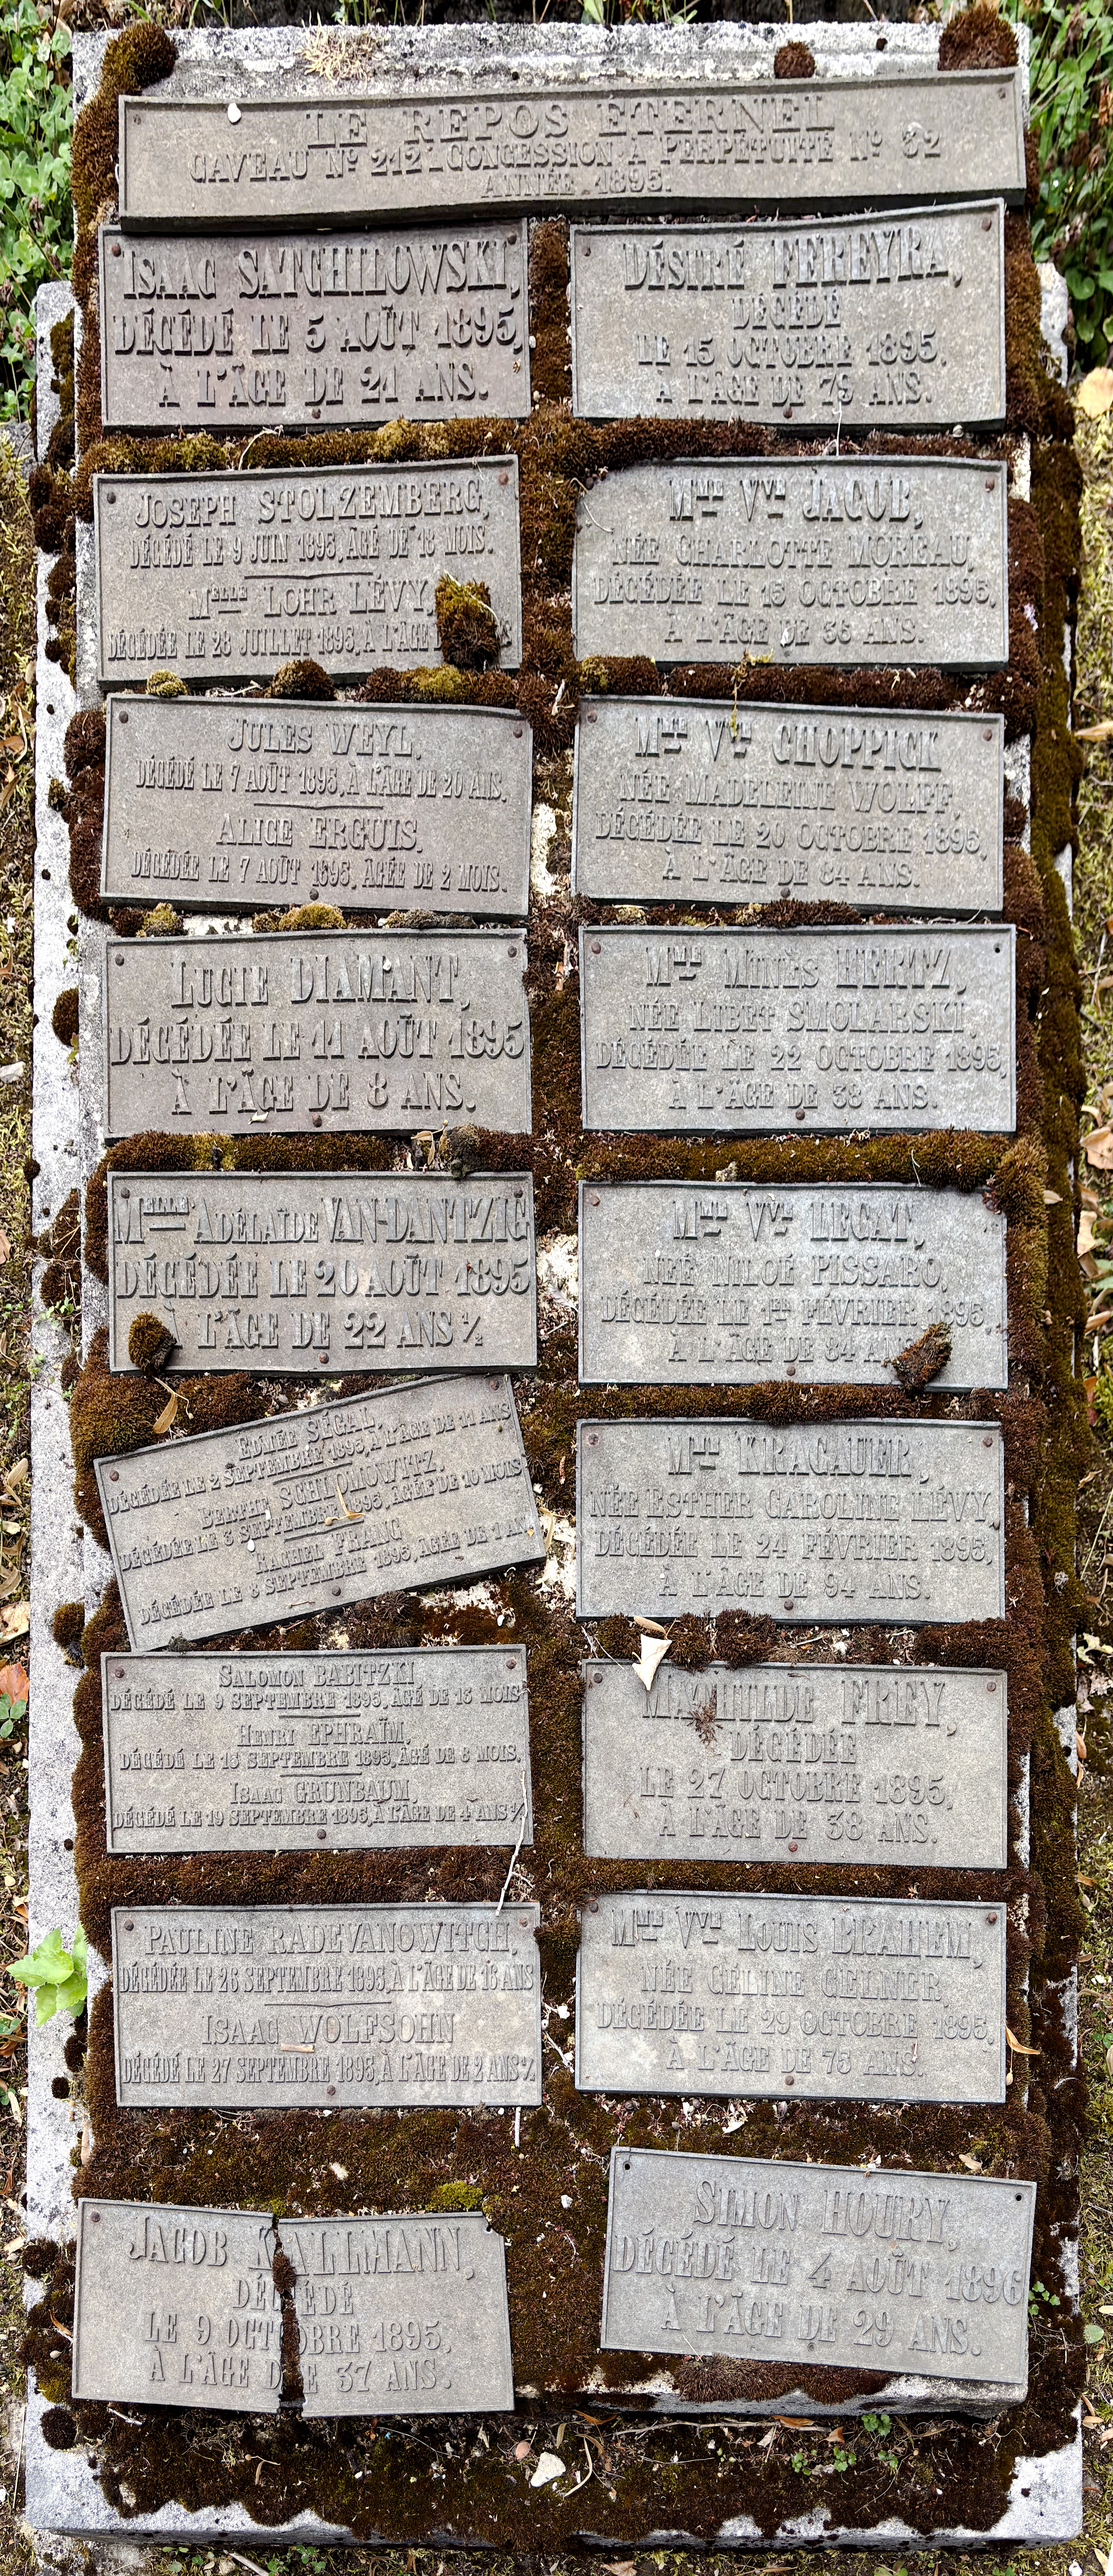 LE REPOS ETERNEL
CAVEAU Nº 212 - CONCESSION À PERPÉTUITÉ Nº 32
ANNÉE 1895.
ISAAC SATCHILOWSKI,
DÉCÉDÉ LE 5 AOÛT 1895,
À L'ÂGE DE 21 ANS.
JOSEPH STOLZEMBERG,
DÉCÉDÉ LE 9 JUIN 1895, ÂGÉ DE 18 MOIS.
MELLE LOHR LÉVY,
DÉCÉDÉE LE 28 JUILLET 1895, À L'ÂGE
JULES WEYL,
DÉCÉDÉ LE 7 AOÛT 1895, À L'ÂGE DE 20 ANS.
ALICE ERGUIS,
DÉCÉDÉE LE 7 AOÛT 1895, ÂGÉE DE 2 MOIS.
LUCIE DIAMANT,
DÉCÉDÉE LE 11 AOÛT 1895
À L'ÂGE DE 8 ANS.
MELLE ADÉLAÏDE VAN-DANTZIG
DÉCÉDÉE LE 20 AOÛT 1895
À L'ÂGE DE 22 ANS ½
EDMÉE SÉGAL,
DÉCÉDÉE LE 2 SEPTEMBRE 1895, À L'ÂGE DE 11 ANS
BERTHE SCHLOMOWITZ
DÉCÉDÉE LE 3 SEPTEMBRE 1895, AGÉE DE 10 MOIS
RACHEL FRANC
DÉCÉDÉE LE 8 SEPTEMBRE 1895, AGÉE DE 1 AN
SALOMON BABITZKI
DÉCÉDÉ LE 9 SEPTEMBRE 1895, AGÉ DE 15 MOIS
HENRI EPHRAÏM,
DÉCÉDÉ LE 15 SEPTEMBRE 1895, ÂGÉ DE 8 MOIS.
ISAAC GRUNBAUM,
DÉCÉDÉ LE 19 SEPTEMBRE 1895, À L'ÂGE DE 4 ANS ½
PAULINE RADEVANOWITCH,
DÉCÉDÉE LE 26 SEPTEMBRE 1895, À L'ÂGE DE 16 ANS
ISAAC WOLFSOHN
DÉCÉDÉ LE 27 SEPTEMBRE 1895, À L'ÂGE DE 2 ANS ½
JACOB KALLMANN,
DÉCÉDÉ
LE 9 OCTOBRE 1895,
À L'ÂGE DE 37 ANS.
DÉSIRÉ FEREYRA,
DÉCÉDÉ
LE 15 OCTOBRE 1895,
À L'ÂGE DE 79 ANS.
MME VVE JACOB,
NÉE CHARLOTTE MOREAU,
DÉCÉDÉE LE 15 OCTOBRE 1895,
À L'ÂGE DE 56 ANS.
MME VVE CHOPPICK
NÉE MADELEINE WOLFF,
DÉCÉDÉE LE 20 OCTOBRE 1895,
À L'ÂGE DE 84 ANS.
MME MINÈS HERTZ,
NÉE LIBET SMOLARSKI,
DÉCÉDÉE LE 22 OCTOBRE 1895,
À L'ÂGE DE 38 ANS.
MME VVE LEGAT,
NÉE NILOÉ PISSARO,
DÉCÉDÉE LE 1ER FÉVRIER 1895
À L'ÂGE DE 84 ANS
MME KRAGAUER,
NÉE ESTHER CAROLINE LÉVY,
DÉCÉDÉE LE 24 FÉVRIER 1895,
À L'ÂGE DE 94 ANS.
MATHILDE FREY,
DÉCÉDÉE
LE 27 OCTOBRE 1895,
À L'ÂGE DE 38 ANS.
MME VVE LOUIS BRAHEM,
NÉE CÉLINE GELNER,
DÉCÉDÉE LE 29 OCTOBRE 1895,
À L'ÂGE DE 75 ANS.
SIMON HOURY,
DÉCÉDÉ LE 4 AOÛT 1896
À L'ÂGE DE 29 ANS.